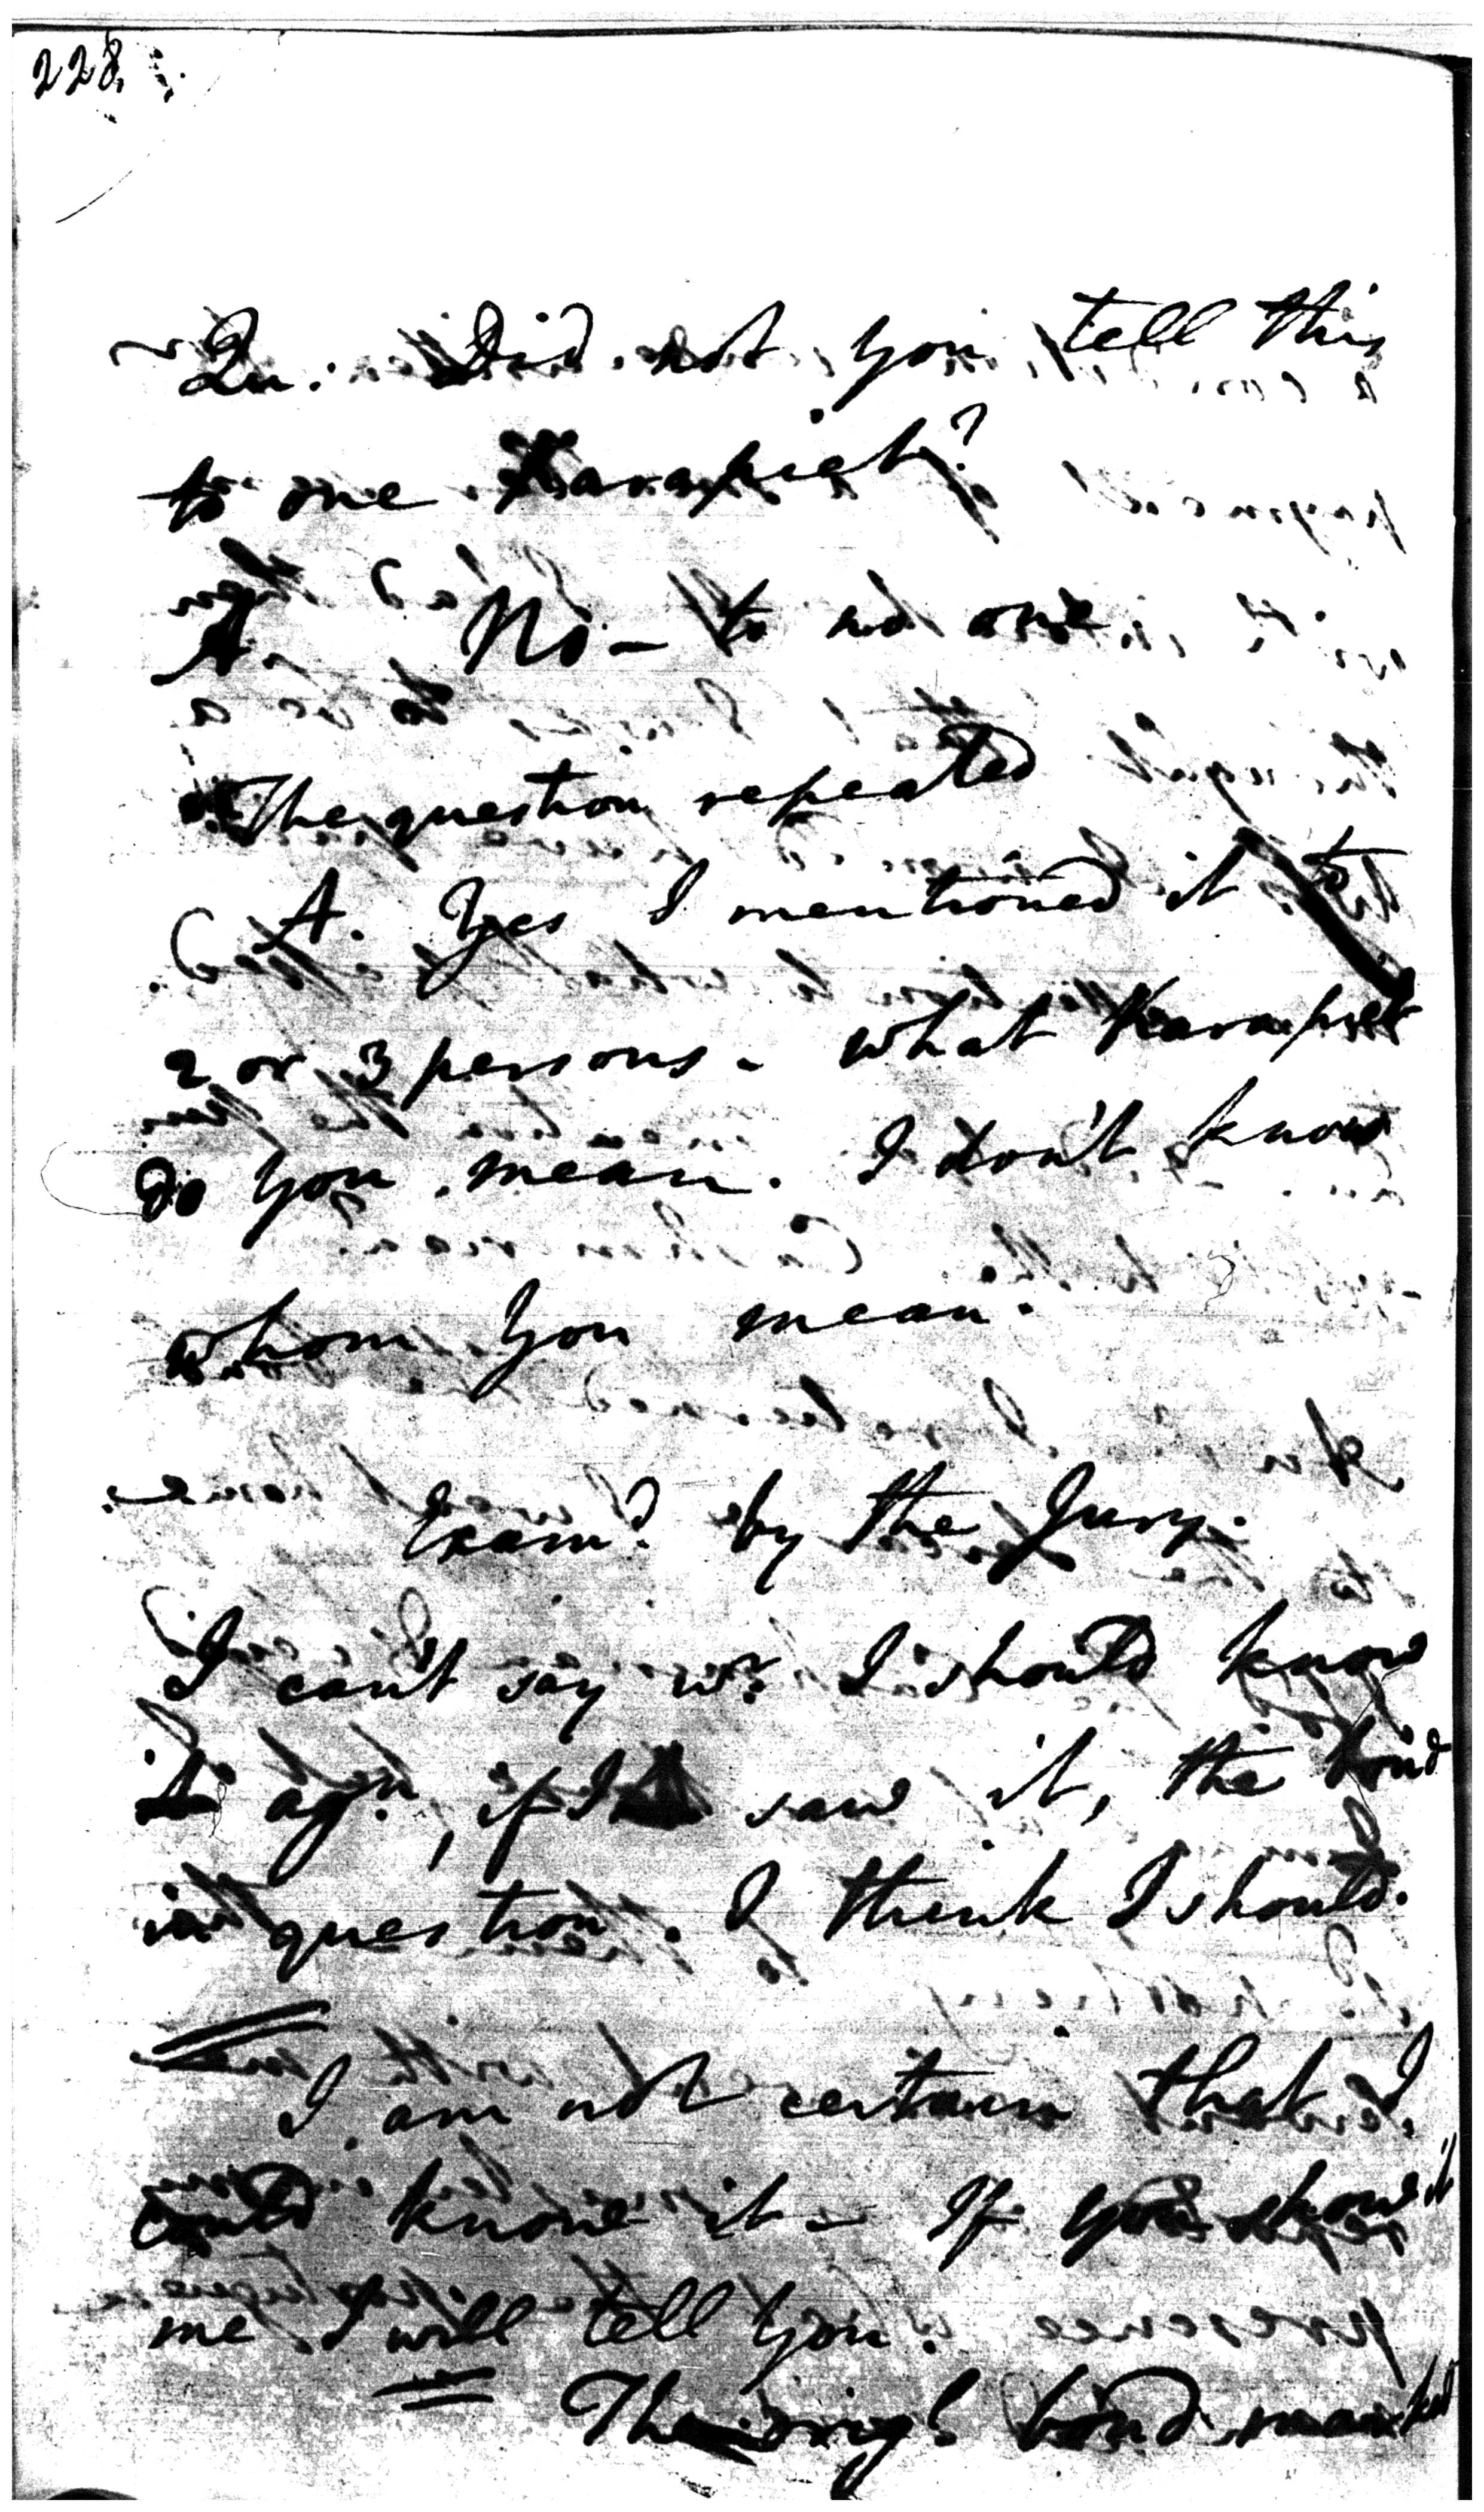 228.
Qu: Did not you tell this
to one Karapiet?
A. No – to no one
The question repeated
A. Yes I mentioned it to
2 or 3 persons. What Karapiet
do you mean. I don't know
whom you mean.
Examd. by the Jury.
I can't say wr. I should know
it agn., if I saw it, the bond
in question. I think I should.
I am not certain that I
could know it – If you show it
me I will tell you.
The origl. bond marked